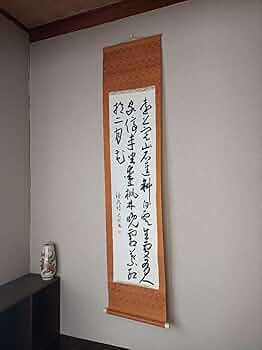 遠上寒山石逕斜白雲生處有人
家停車坐愛楓林晩霜葉紅
於二月花